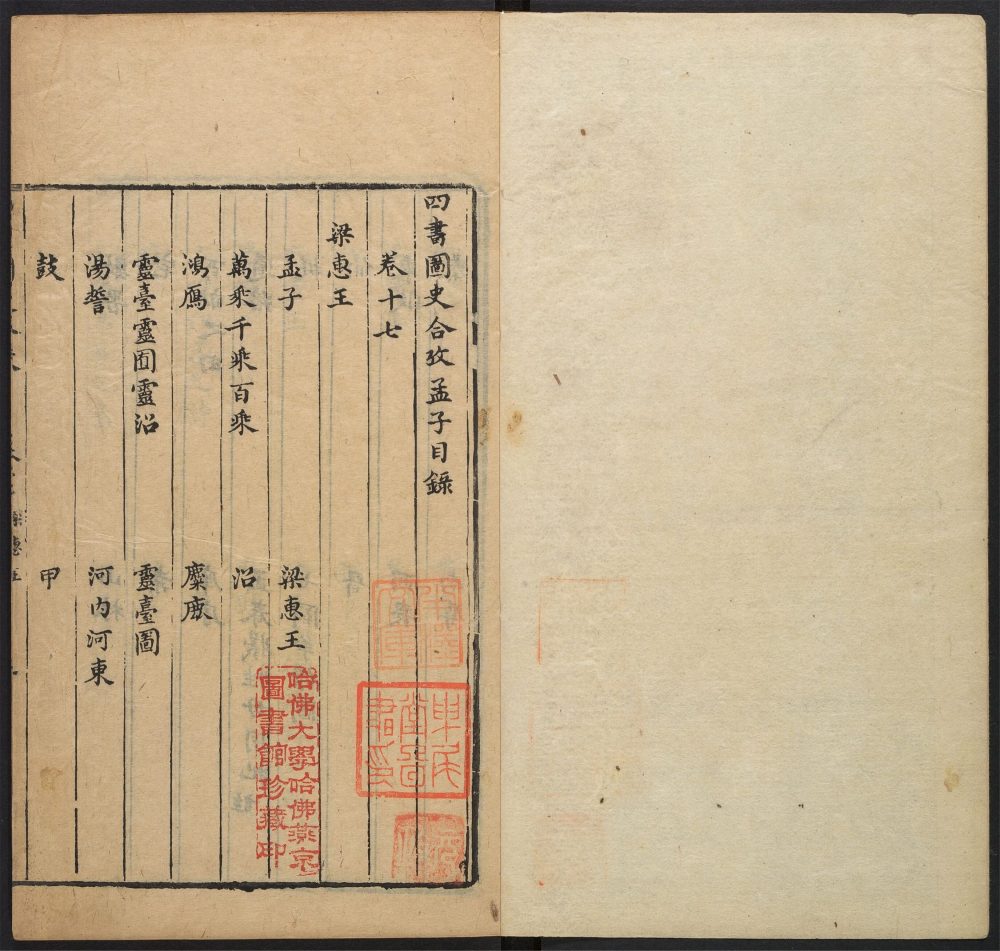 四書圖史合攷孟子目錄
卷十七
梁惠王
孟子 梁惠王
萬乘千乘百乘 沼
鴻鴈 麋鹿
靈臺靈囿靈沼 靈臺圖
湯誓 河內河東
鼓 甲
哈佛大學哈佛燕京
圖書館珍藏印